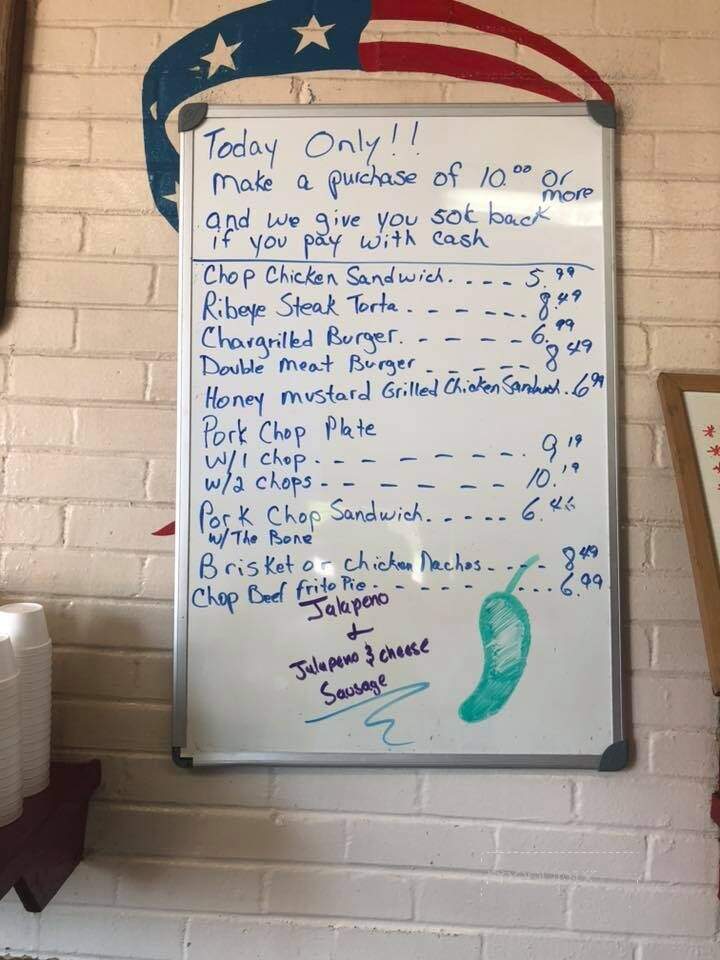 Today Only!!
Make a purchase of 10.00 or more
and we give you 50¢ back
if you pay with cash
Chop Chicken Sandwich.---- 5.99
Ribeye Steak Torta.------ 8.49
Chargrilled Burger.------ 6.99
Double Meat Burger------ 8.49
Honey mustard Grilled Chicken Sandwich.6.99
Pork Chop Plate
w/1 chop.------- 9.19
w/2 chops------- 10.19
Pork Chop Sandwich.----- 6.46
w/The Bone
Brisket or Chicken Nachos.---- 8.49
Chop Beef frito Pie.-----...6.99
Jalapeno
&
Jalapeno & cheese
Sausage